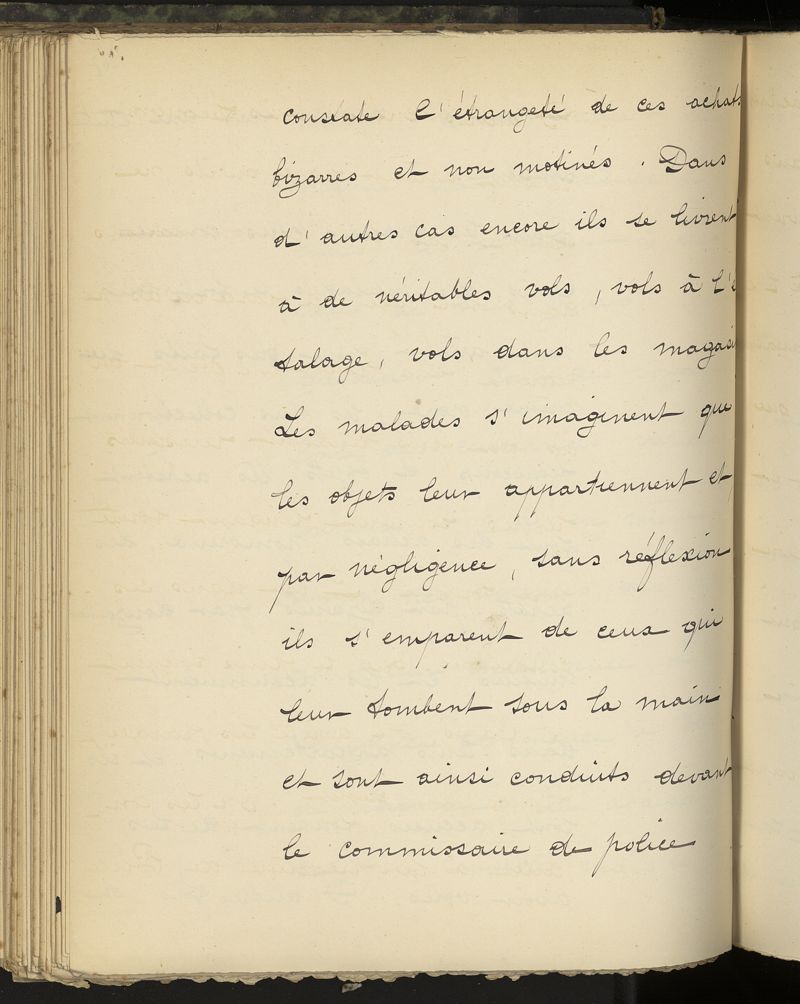 constate l'étrangeté de ces achats
bizarres et non motivés. Dans
d'autres cas encore ils se livrent
à de véritables vols, vols à l'é
talage, vols dans les magasi
Les malades s'imaginent que
les objets leur appartiennent et
par négligence, sans réflexion
ils s'emparent de ceux qui
leur tombent sous la main
et sont ainsi conduits devant
le commissaire de police